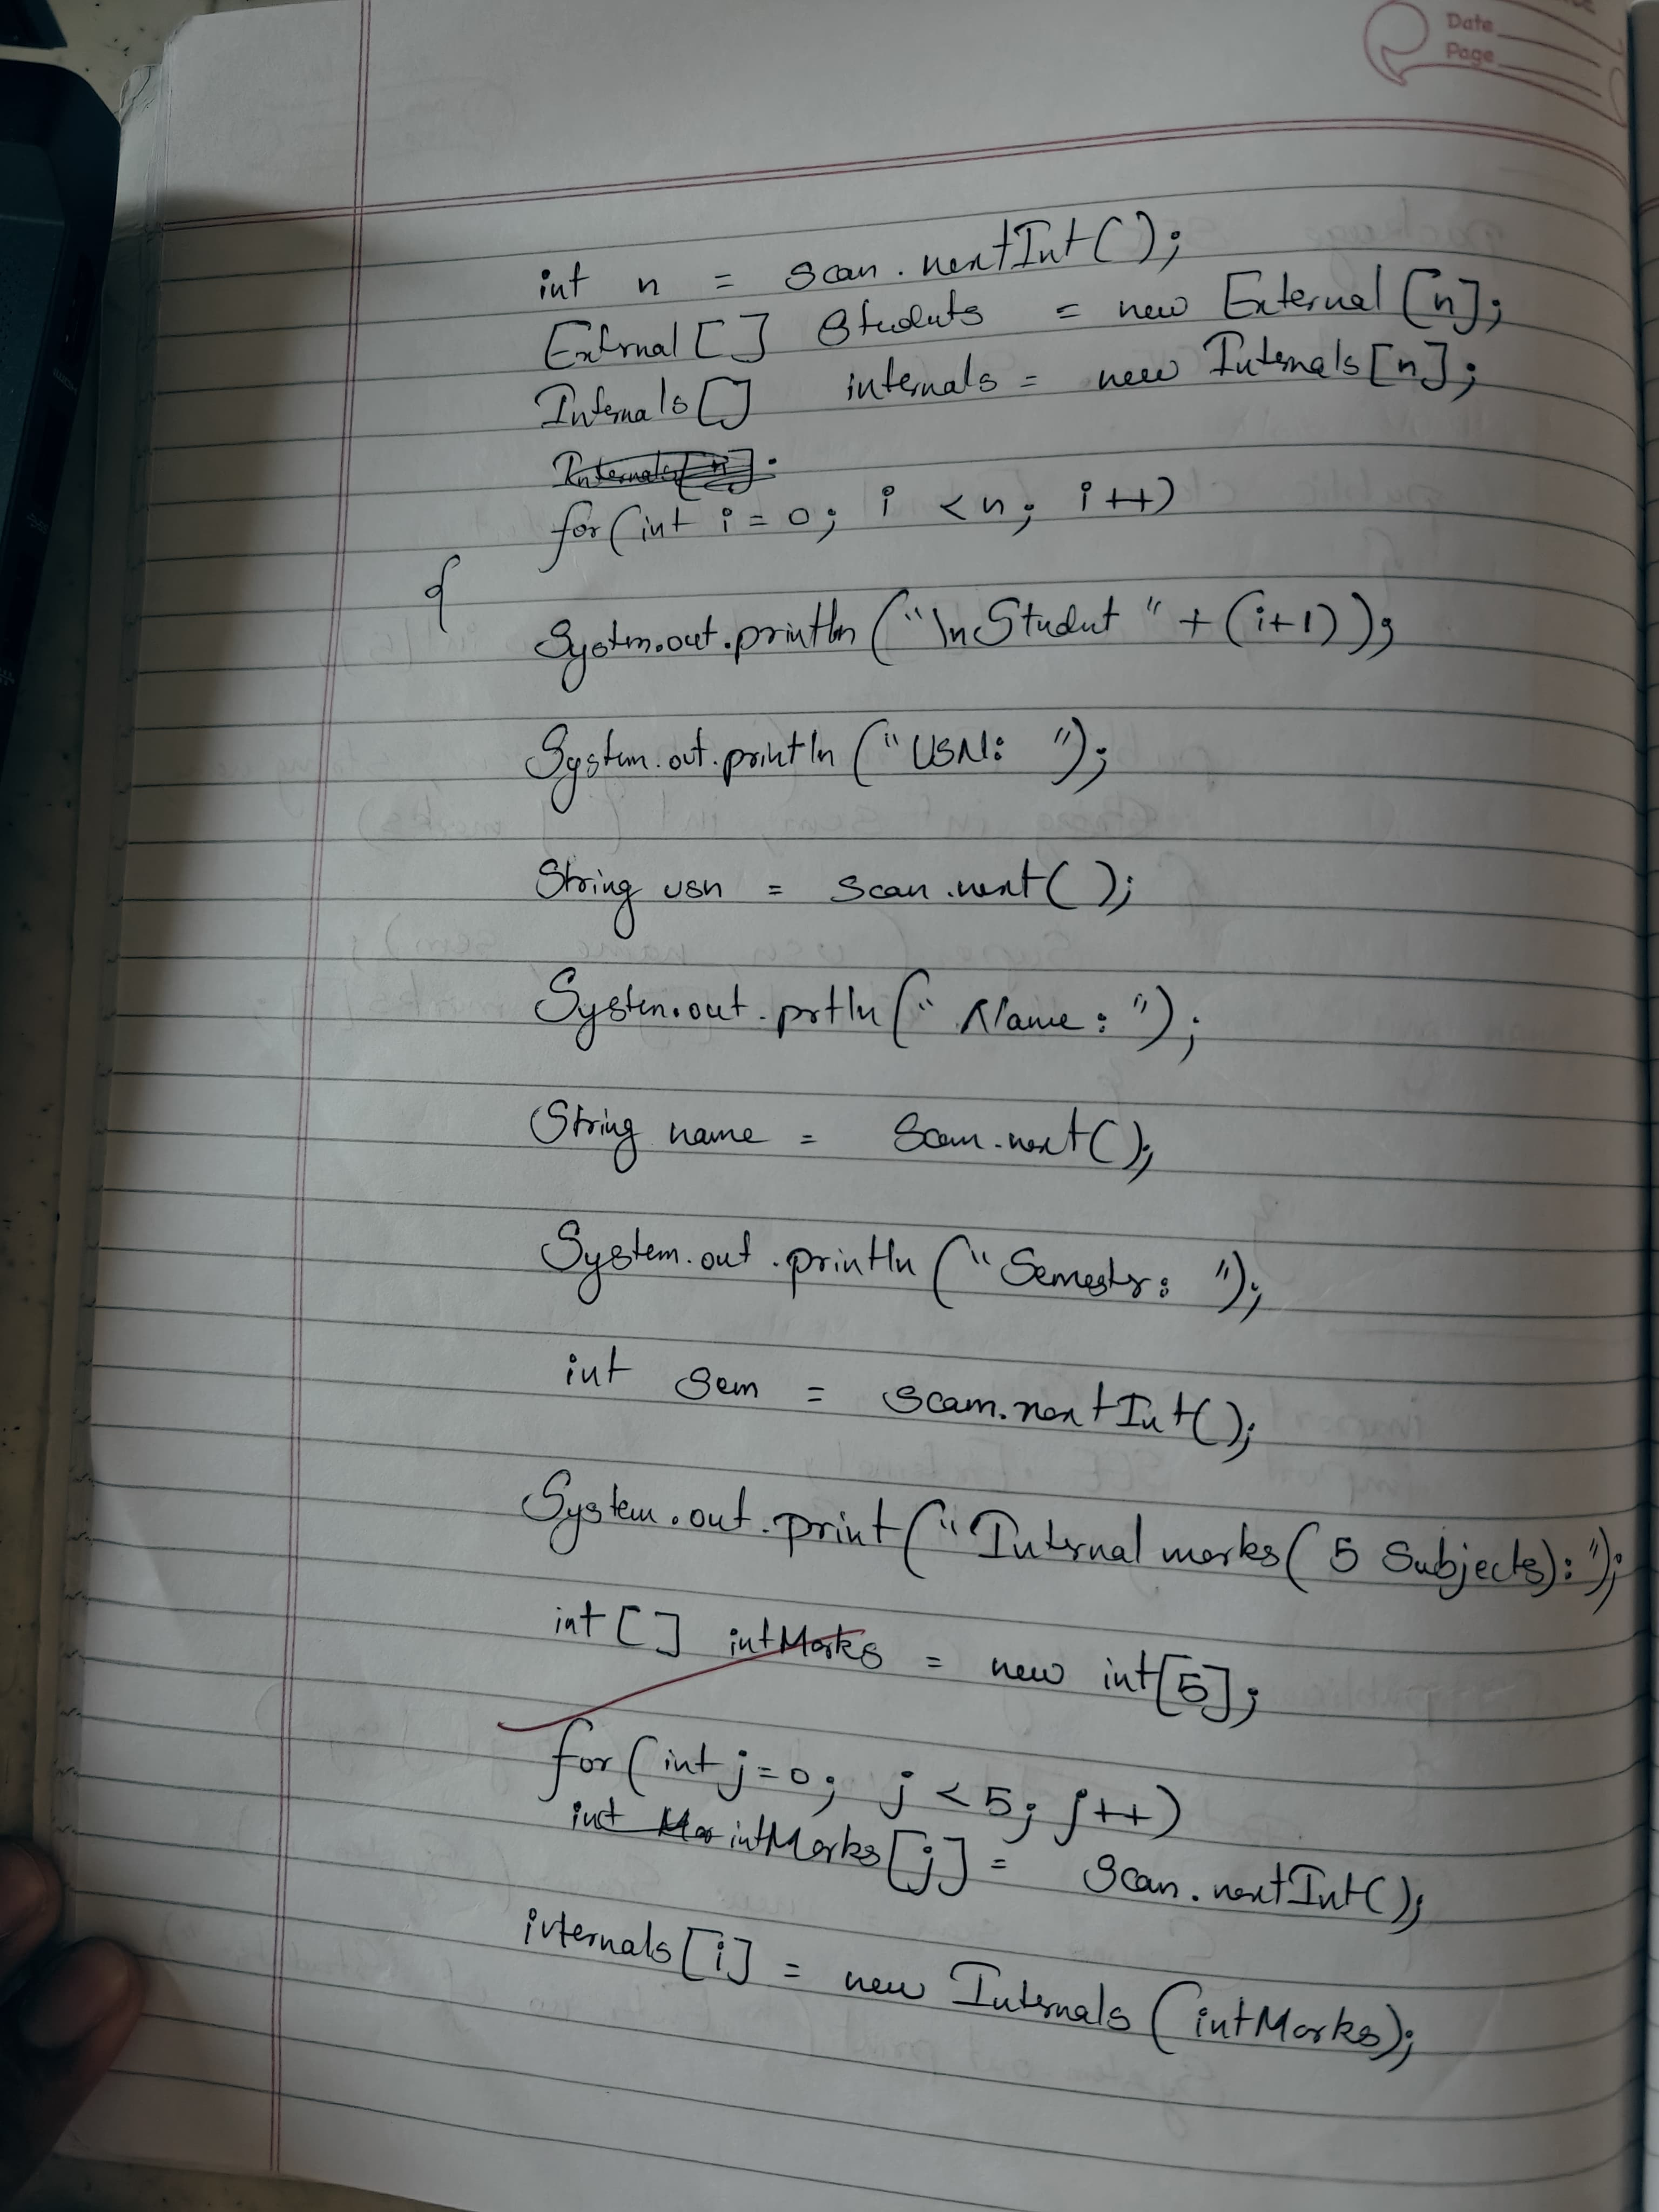 Date
Page
int n = scan.nextInt();
External[] Students = new External[n];
Internals[] internals = new Internals[n];
Internals[n].
for(int i=0; i<n; i++)
{
System.out.println("\nStudent "+(i+1));
System.out.println("USN: ");
String usn = scan.next();
System.out.prtln("Name: ");
String name = scan.next();
System.out.println("Semester: ");
int sem = scan.nextInt();
System.out.print("Internal marks(5 Subjects):");
int[] intMarks = new int[5];
for(int j=0; j<5; j++)
int Mar intMarks[j] = scan.nextInt();
internals[i] = new Internals(intMarks);